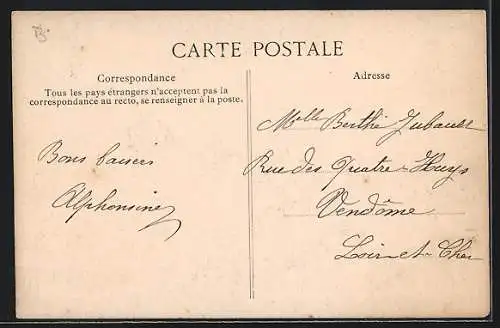 CARTE POSTALE
Correspondance
Tous les pays étrangers n'acceptent pas la
correspondance au recto, se renseigner à la poste.
Bons baisers
Alphonsine
Adresse
Melle Berthe Jubault
Rue des Quatre-Huys
Vendôme
Loir-et-Cher